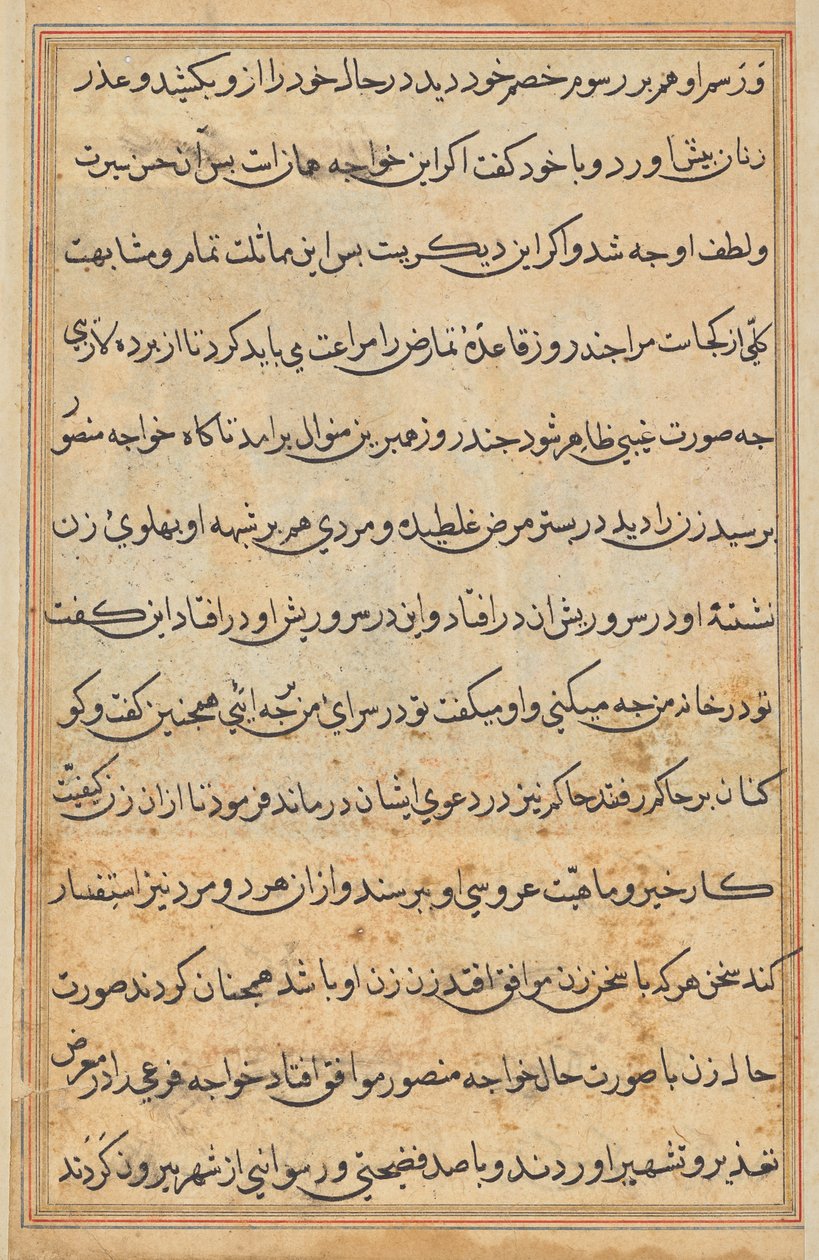 وَرَسم او هم بر رسوم خصم خود دید در حال خود را ازو بکشید و عذر
زنان بیش اورد و با خود کفت اکر این خواجه همان است بس آن حسن سیرت
و لطف او جه شد و اکر این دیکریست بس این مماثلت تمام و مشابهت
کلّی از کجاست مرا جند روز قاعدهٔ تمارض را مراعت می باید کرد تا از برده لاریبی
جه صورت غیبی ظاهر شود جند روز همبرین منوال برامد تا کاه خواجه منصور
برسید زن را دید در بستر مرض غلطیده و مردی هم بر شبهه او بهلویٔ زن
نشستهٔ او در سر و ریش ان در افتاد و این در سر و ریش او در افتاد این کفت
تو در خانه من جه میکنی و او میکفت تو در سرایٔ من جه ائی همجنین کفت و کو
کنان بر حاکم رفتند حاکم نیز در دعوی ایشان درماند فرمود تا ازان زن کیفیّت
کار خیر و ماهیّت عروسی او ببرسند و ازان هر دو مرد نیز استفسار
کند سخن هرکه با سخن زن موافق افتد زن زن او باشد همجنان کردند صورت
حال زن با صورت حال خواجه منصور موافق افتاد خواجه فرعی را در معرض
تعذیر و تشهیر اوردند و با صد فضیحتی و رسوائی از شهر بیرون کَردَند